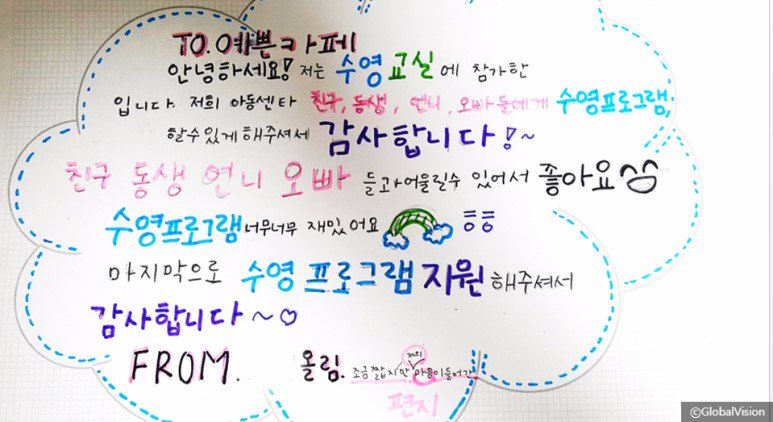 TO. 예쁜카페
안녕하세요! 저는 수영교실에 참가한
입니다. 저희 아동센타 친구, 동생, 언니, 오빠들에게 수영프로그램,
할수있게 해주셔서 감사합니다!~
친구 동생 언니 오빠 들과어울릴수 있어서 좋아요
수영프로그램너무너무 재밌어요 ㅎㅎ
마지막으로 수영프로그램 지원해주셔서
감사합니다~♡
FROM. 올림. 조금짧지만 저희 마음이들어간
편지
©GlobalVision